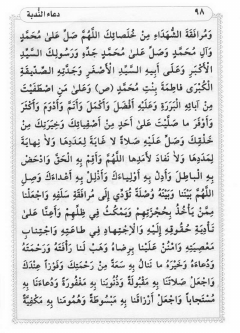 ٩٨ دعاء الندبة
وَمُرافَقَةَ الشُّهَداءِ مِنْ خُلَصائِكَ اللَّهُمَّ صَلِّ عَلىٰ مُحَمَّدٍ
وَآلِ مُحَمَّدٍ وَصَلِّ عَلىٰ مُحَمَّدٍ جَدِّهِ وَرَسُولِكَ السَّيِّدِ
الْأَكْبَرِ وَعَلىٰ أَبِيهِ السَّيِّدِ الْأَصْغَرِ وَجَدَّتِهِ الصِّدِّيقَةِ
الْكُبْرىٰ فاطِمَةَ بِنْتِ مُحَمَّدٍ (ص) وَعَلىٰ مَنِ اصْطَفَيْتَ
مِنْ آبائِهِ الْبَرَرَةِ وَعَلَيْهِ أَفْضَلَ وَأَكْمَلَ وَأَتَمَّ وَأَدْوَمَ وَأَكْثَرَ
وَأَوْفَرَ ما صَلَّيْتَ عَلىٰ أَحَدٍ مِنْ أَصْفِيائِكَ وَخِيَرَتِكَ مِنْ
خَلْقِكَ وَصَلِّ عَلَيْهِ صَلاةً لا غايَةَ لِعَدَدِها وَلا نِهايَةَ
لِمَدَدِها وَلا نَفادَ لِأَمَدِها اللَّهُمَّ وَأَقِمْ بِهِ الْحَقَّ وَادْحَضْ
بِهِ الْباطِلَ وَأَدِلْ بِهِ أَوْلِياءَكَ وَأَذْلِلْ بِهِ أَعْداءَكَ وَصِلِ
اللَّهُمَّ بَيْنَنا وَبَيْنَهُ وُصْلَةً تُؤَدِّي إِلىٰ مُرافَقَةِ سَلَفِهِ وَاجْعَلْنا
مِمَّنْ يَأْخُذُ بِحُجْزَتِهِمْ وَيَمْكُثُ فِي ظِلِّهِمْ وَأَعِنَّا عَلىٰ
تَأْدِيَةِ حُقُوقِهِ إِلَيْهِ وَالْاِجْتِهادِ فِي طاعَتِهِ وَاجْتِنابِ
مَعْصِيَتِهِ وَامْنُنْ عَلَيْنا بِرِضاهُ وَهَبْ لَنا رَأْفَتَهُ وَرَحْمَتَهُ
وَدُعاءَهُ وَخَيْرَهُ ما نَنالُ بِهِ سَعَةً مِنْ رَحْمَتِكَ وَفَوْزاً عِنْدَكَ
وَاجْعَلْ صَلاتَنا بِهِ مَقْبُولَةً وَذُنُوبَنا بِهِ مَغْفُورَةً وَدُعاءَنا بِهِ
مُسْتَجاباً وَاجْعَلْ أَرْزاقَنا بِهِ مَبْسُوطَةً وَهُمُومَنا بِهِ مَكْفِيَّةً